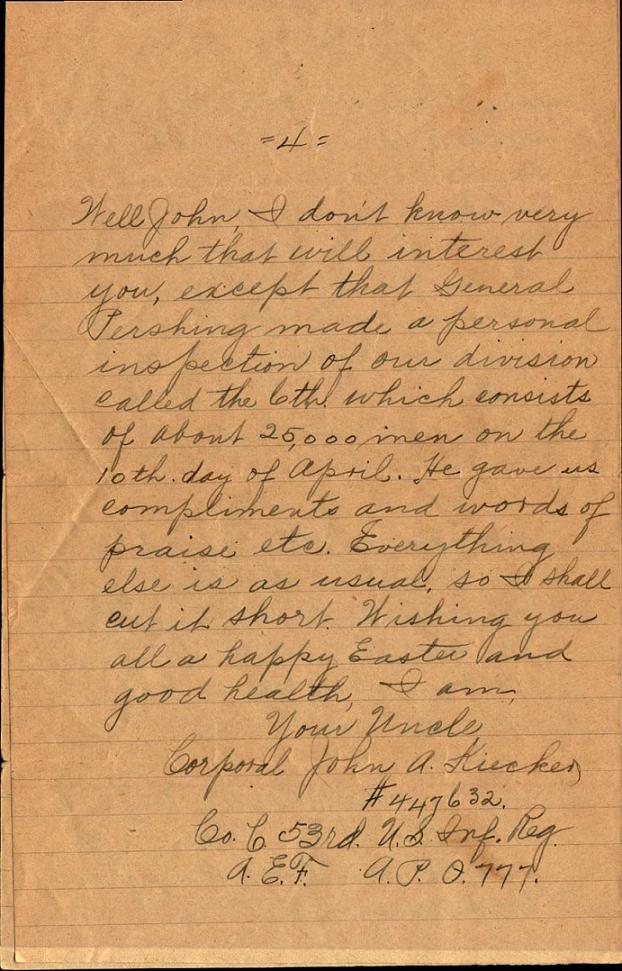 =4=
Well John, I don't know very
much that will interest
you, except that General
Pershing made a personal
inspection of our division
called the 6th. which consists
of about 25,000 men on the
10th. day of April. He gave us
compliments and words of
praise etc. Everything
else is as usual, so I shall
cut it short. Wishing you
all a happy Easter and
good health, I am,
Your Uncle,
Corporal John A. Kiecker,
#447632.
Co. C. 53rd. U.S. Inf. Reg.
A.E.F. A.P.O. 777.